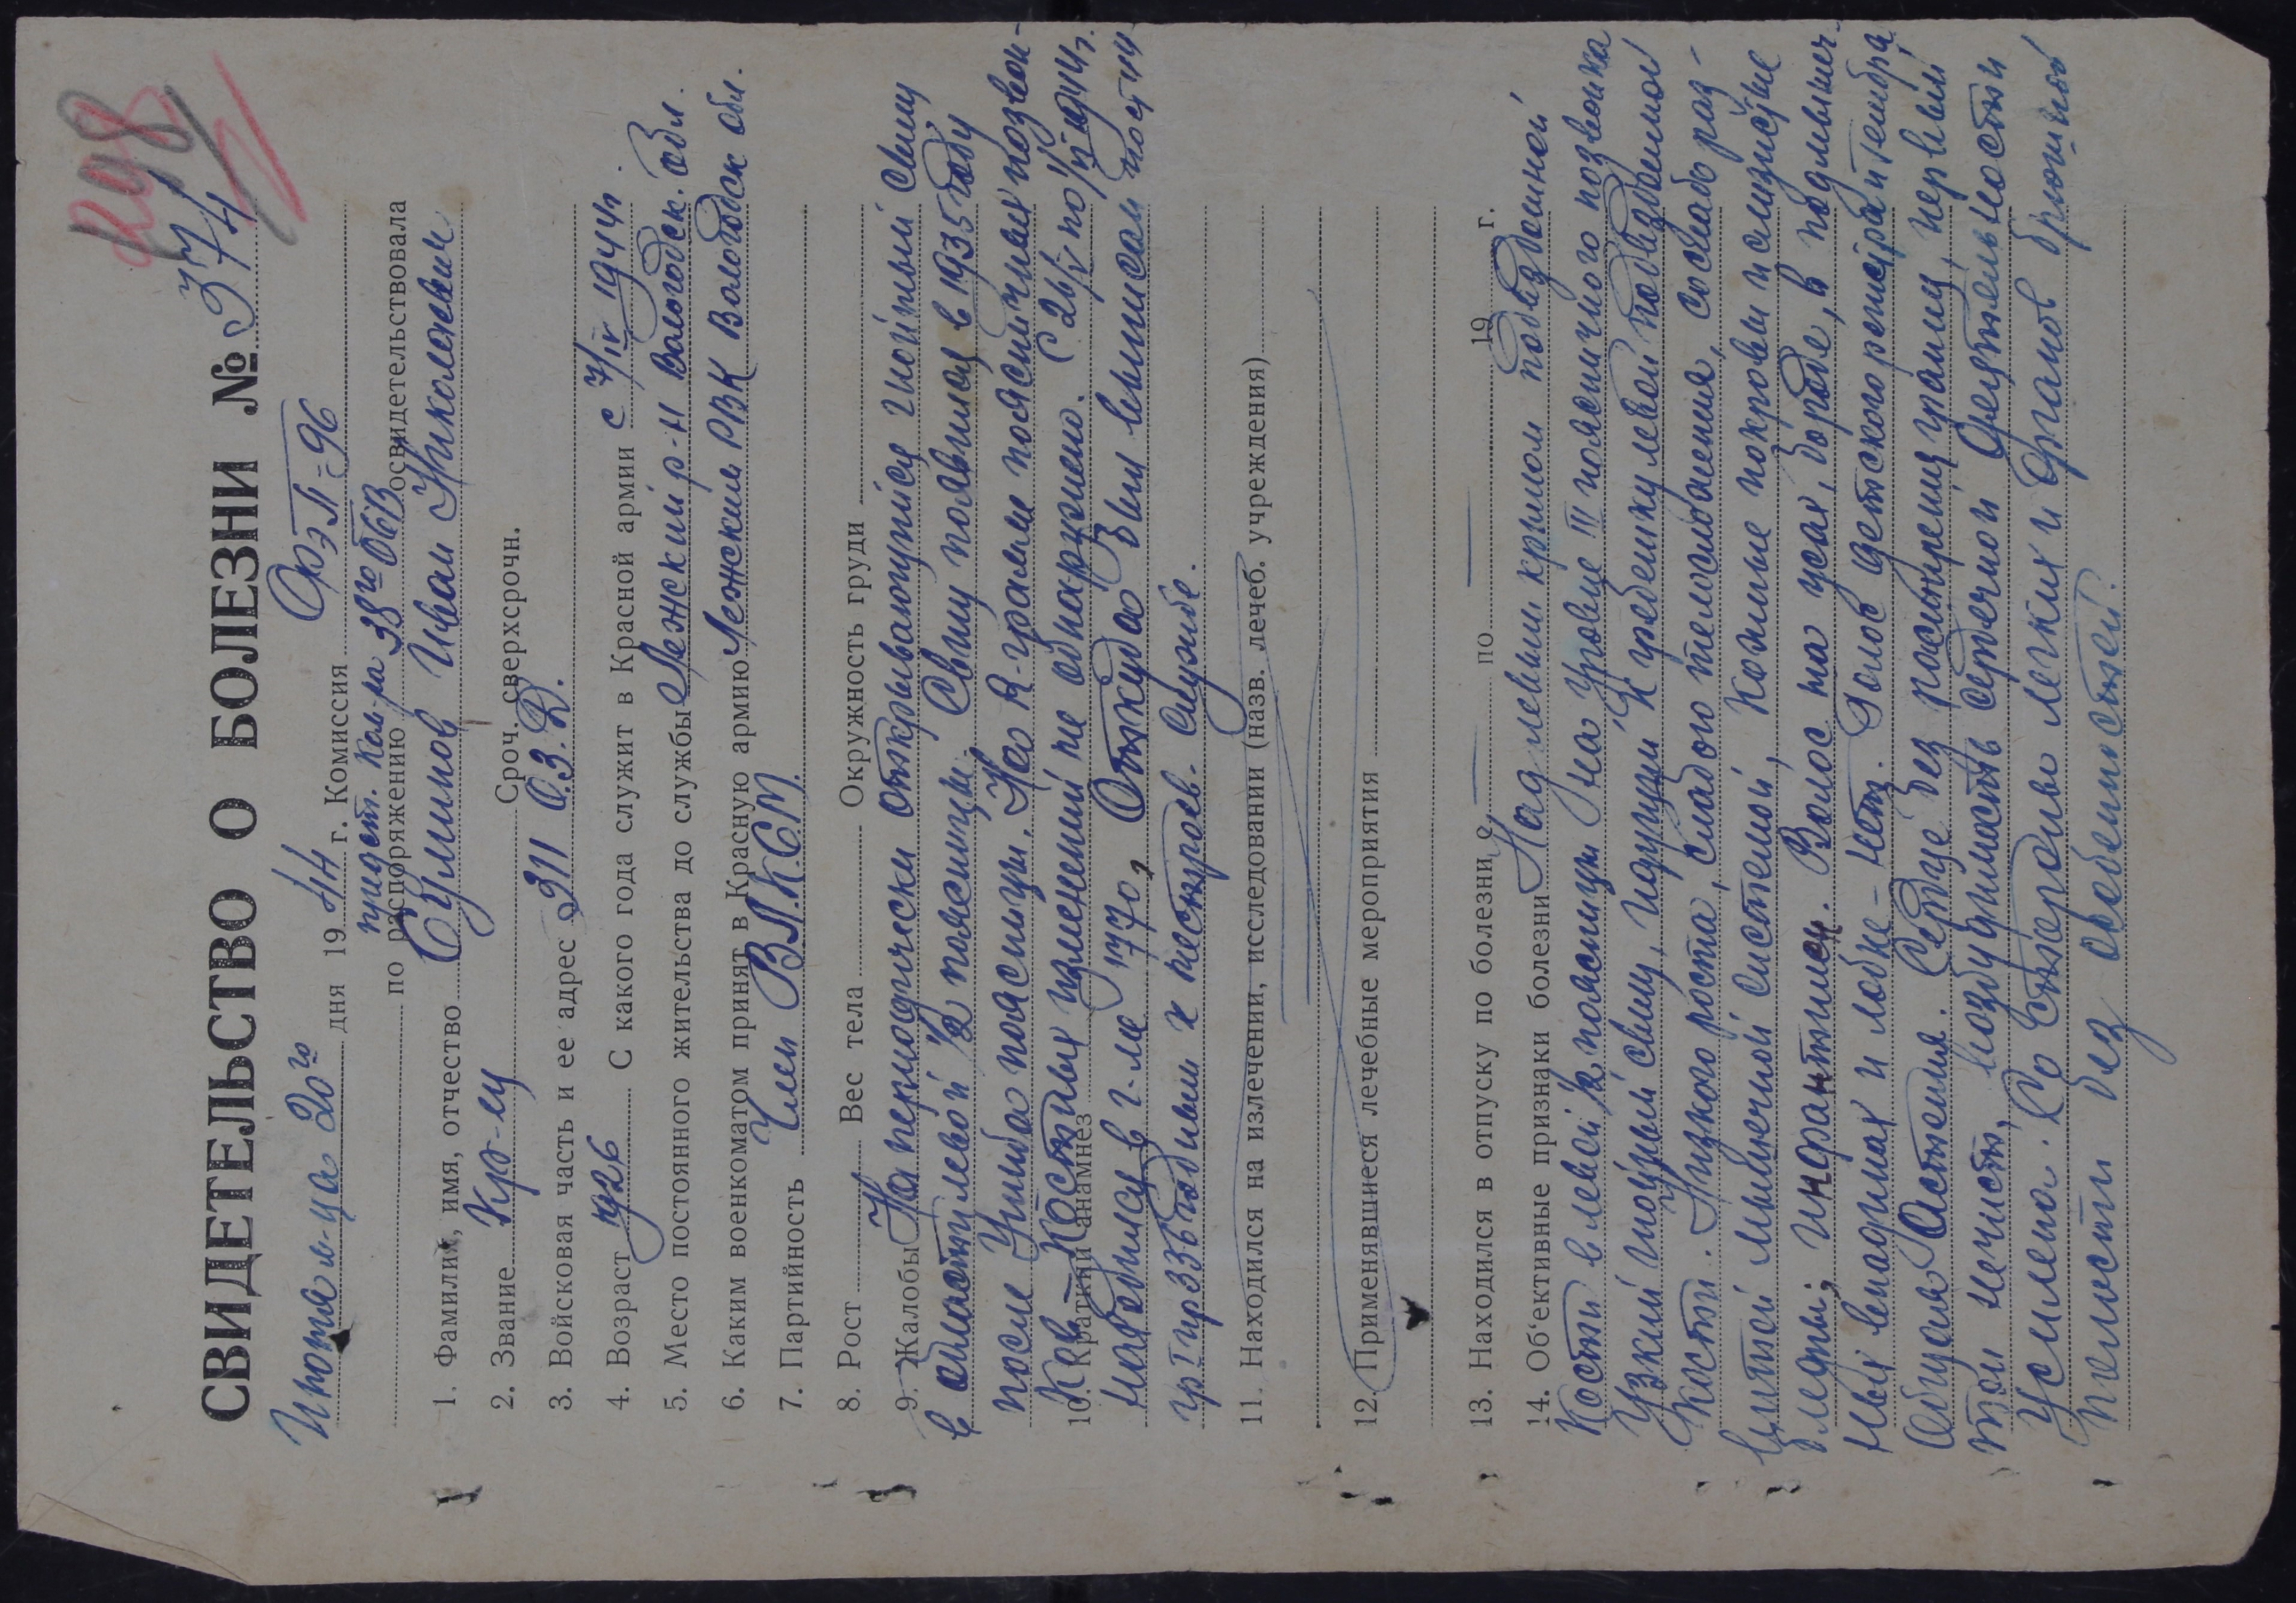 298
СВИДЕТЕЛЬСТВО О БОЛЕЗНИ № 374
Июня м-ца 20го дня 1944 г. Комиссия ФЭП-96
по распоряжению предст. Ком-ра 38го освидетельствовала
1. Фамилия, имя, отчество Сумнов Иван Николаевич
2. Звание Кр-ец Сроч. сверхсрочн.
3. Войсковая часть и ее адрес 311 О.З.
4. Возраст 1926 С какого года служит в Красной армии с 7/IV 1944г.
5. Место постоянного жительства до службы Лежский р-н Вологодск. обл.
6. Каким военкоматом принят в Красную армию Лежским РВК Вологодск обл.
7. Партийность Член В.Л.К.С.М.
8. Рост Вес тела Окружность груди
9. Жалобы На периодически открывающийся гнойный свищ
в области левой 1/2 поясницы. Свищ появился в 1935 году
после ушиба поясницы. На R-грамме поясничных позвон-
10. Краткий анамнез ков – Костных изменений не обнаружено. С 26/V по 44г.
находился в г-ле 1770, Откуда был выписан
годным к нестроев. службе.
11. Находился на излечении, исследовании (назв. лечеб. учреждения)
12. Применявшиеся лечебные мероприятия
13. Находился в отпуску по болезни с — по — 19 г.
14. Об‘ективные признаки болезни Над левым крылом подвздошной
кости в левой 1/2 поясницы на уровне III поясничного позвонка
узкий гнойный свищ, идущий к гребешку левой подвздошной
кости. Низкого роста, слабого телосложения, со слабо раз-
витой мышечной системой, Кожные покровы и слизистые
бледны; инфантилен. Волос на усах, бороде, в подмышеч-
ных впадинах и лобке – нет. Голос детского регистра и тембра.
Общая Астения. Сердце без расширения границ, первый
тон нечист, возбудимость сердечной деятельности
усилена. Со стороны легких и органов брюшной
полости без особенностей.